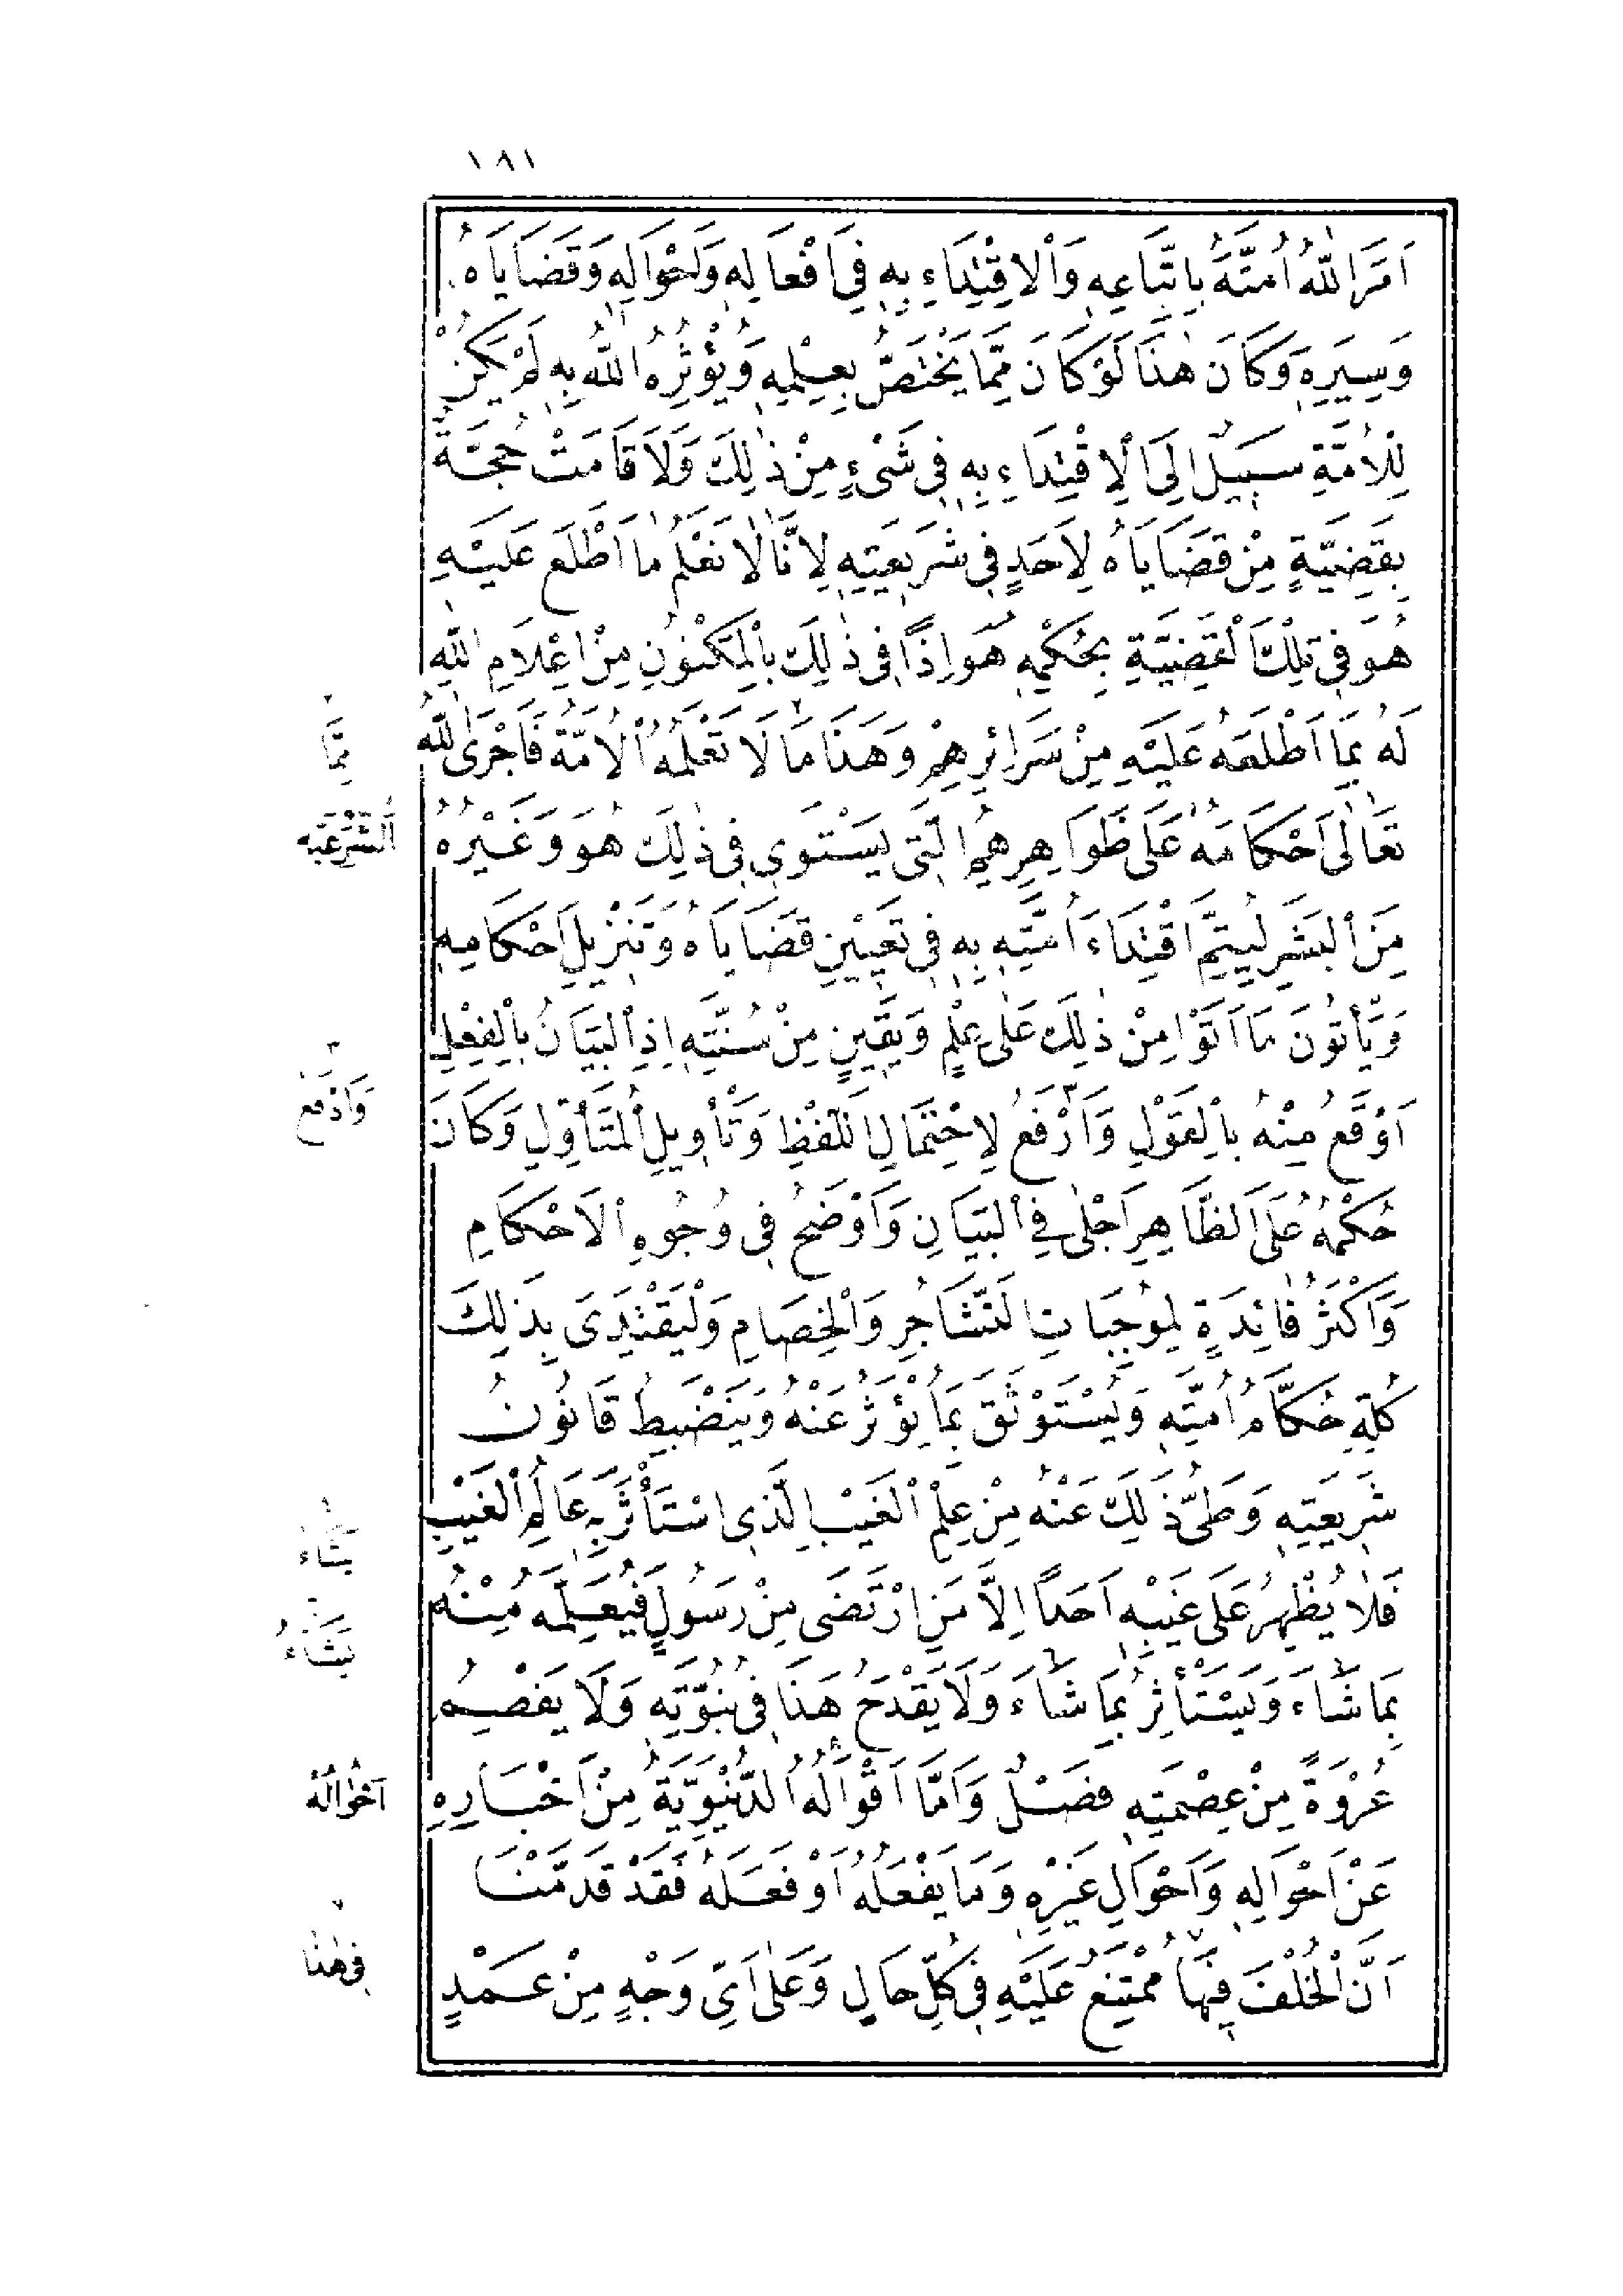 ١٨١
اَمَرَ اللّٰهُ اُمَّتَهُ بِاتِّبَاعِهِ وَالْاِقْتِدَاءِ بِهِ فِي اَفْعَالِهِ وَاَحْوَالِهِ وَقَضَايَاهُ
وَسِيَرِهِ وَكَانَ هٰذَا لَوْ كَانَ مِمَّا يَخْتَصُّ بِعِلْمِهِ وَيُؤْثِرُهُ اللّٰهُ بِهِ لَمْ يَكُنْ
لِلْاُمَّةِ سَبِيلٌ اِلَى الْاِقْتِدَاءِ بِهِ فِي شَيْءٍ مِنْ ذٰلِكَ وَلَا قَامَتْ حُجَّةٌ
بِقَضِيَّةٍ مِنْ قَضَايَاهُ لِاَحَدٍ فِي شَرِيعَتِهِ لِاَنَّا لَا نَعْلَمُ مَا اُطْلِعَ عَلَيْهِ
هُوَ فِي تِلْكَ الْقَضِيَّةِ بِحُكْمِهِ هُوَ اِذًا فِي ذٰلِكَ بِالْمَكْنُونِ مِنْ اِعْلَامِ اللّٰهِ
لَهُ بِمَا اَطْلَعَهُ عَلَيْهِ مِنْ سَرَائِرِهِمْ وَهٰذَا مَا لَا تَعْلَمُهُ الْاُمَّةُ فَاَجْرَى اللّٰهُ
مِمَّا
تَعَالٰى اَحْكَامَهُ عَلَى ظَوَاهِرِهِمُ الَّتِي يَسْتَوِي فِي ذٰلِكَ هُوَ وَغَيْرُهُ
الشَّرْعِيَّه
مِنَ الْبَشَرِ لِيُتِمَّ اقْتِدَاءَ اُمَّتِهِ بِهِ فِي تَعْيِينِ قَضَايَاهُ وَتَنْزِيلِ اَحْكَامِهِ
وَيَأْتُونَ مَا اَتَوْا مِنْ ذٰلِكَ عَلٰى عِلْمٍ وَيَقِينٍ مِنْ سُنَّتِهِ اِذِ الْبَيَانُ بِالْفِعْلِ
اَوْقَعُ مِنْهُ بِالْقَوْلِ وَاَرْفَعُ لِاِحْتِمَالِ اللَّفْظِ وَتَأْوِيلِ الْمُتَأَوِّلِ وَكَانَ
وَاَدْفَعُ
حُكْمُهُ عَلَى الظَّاهِرِ اَجْلٰى فِي الْبَيَانِ وَاَوْضَحُ فِي وُجُوهِ الْاَحْكَامِ
وَاَكْثَرُ فَائِدَةٍ لِمُوجَبَاتِ التَّشَاجُرِ وَالْخِصَامِ وَلْيَقْتَدِىَ بِذٰلِكَ
كُلِّهِ حُكَّامُ اُمَّتِهِ وَيُسْتَوْثَقَ بِمَا يُؤْثَرُ عَنْهُ وَيَنْضَبِطُ قَانُونُ
شَرِيعَتِهِ وَطَيُّ ذٰلِكَ عَنْهُ مِنْ عِلْمِ الْغَيْبِ الَّذِي اسْتَأْثَرَ بِهِ عَالِمُ الْغَيْبِ
يَشَاءُ
فَلَا يُظْهِرُ عَلَى غَيْبِهِ اَحَدًا اِلَّا مَنِ ارْتَضَى مِنْ رَسُولٍ فَيُعَلِّمُهُ مِنْهُ
يَشَاءُ
بِمَا شَاءَ وَيَسْتَأْثِرُ بِمَا شَاءَ وَلَا يَقْدَحُ هٰذَا فِي نُبُوَّتِهِ وَلَا يَفْصِمُ
عُرْوَةً مِنْ عِصْمَتِهِ فَصْلٌ وَاَمَّا اَقْوَالُهُ الدُّنْيَوِيَّةُ مِنْ اَخْبَارِهِ
اَحْوَالُهُ
عَنْ اَحْوَالِهِ وَاَحْوَالِ غَيْرِهِ وَمَا يَفْعَلُهُ اَوْ فَعَلَهُ فَقَدْ قَدَّمْنَا
اَنَّ الْخُلْفَ فِيهَا مُمْتَنِعٌ عَلَيْهِ فِي كُلِّ حَالٍ وَعَلٰى اَيِّ وَجْهٍ مِنْ عَمْدٍ
فِي هٰذَا